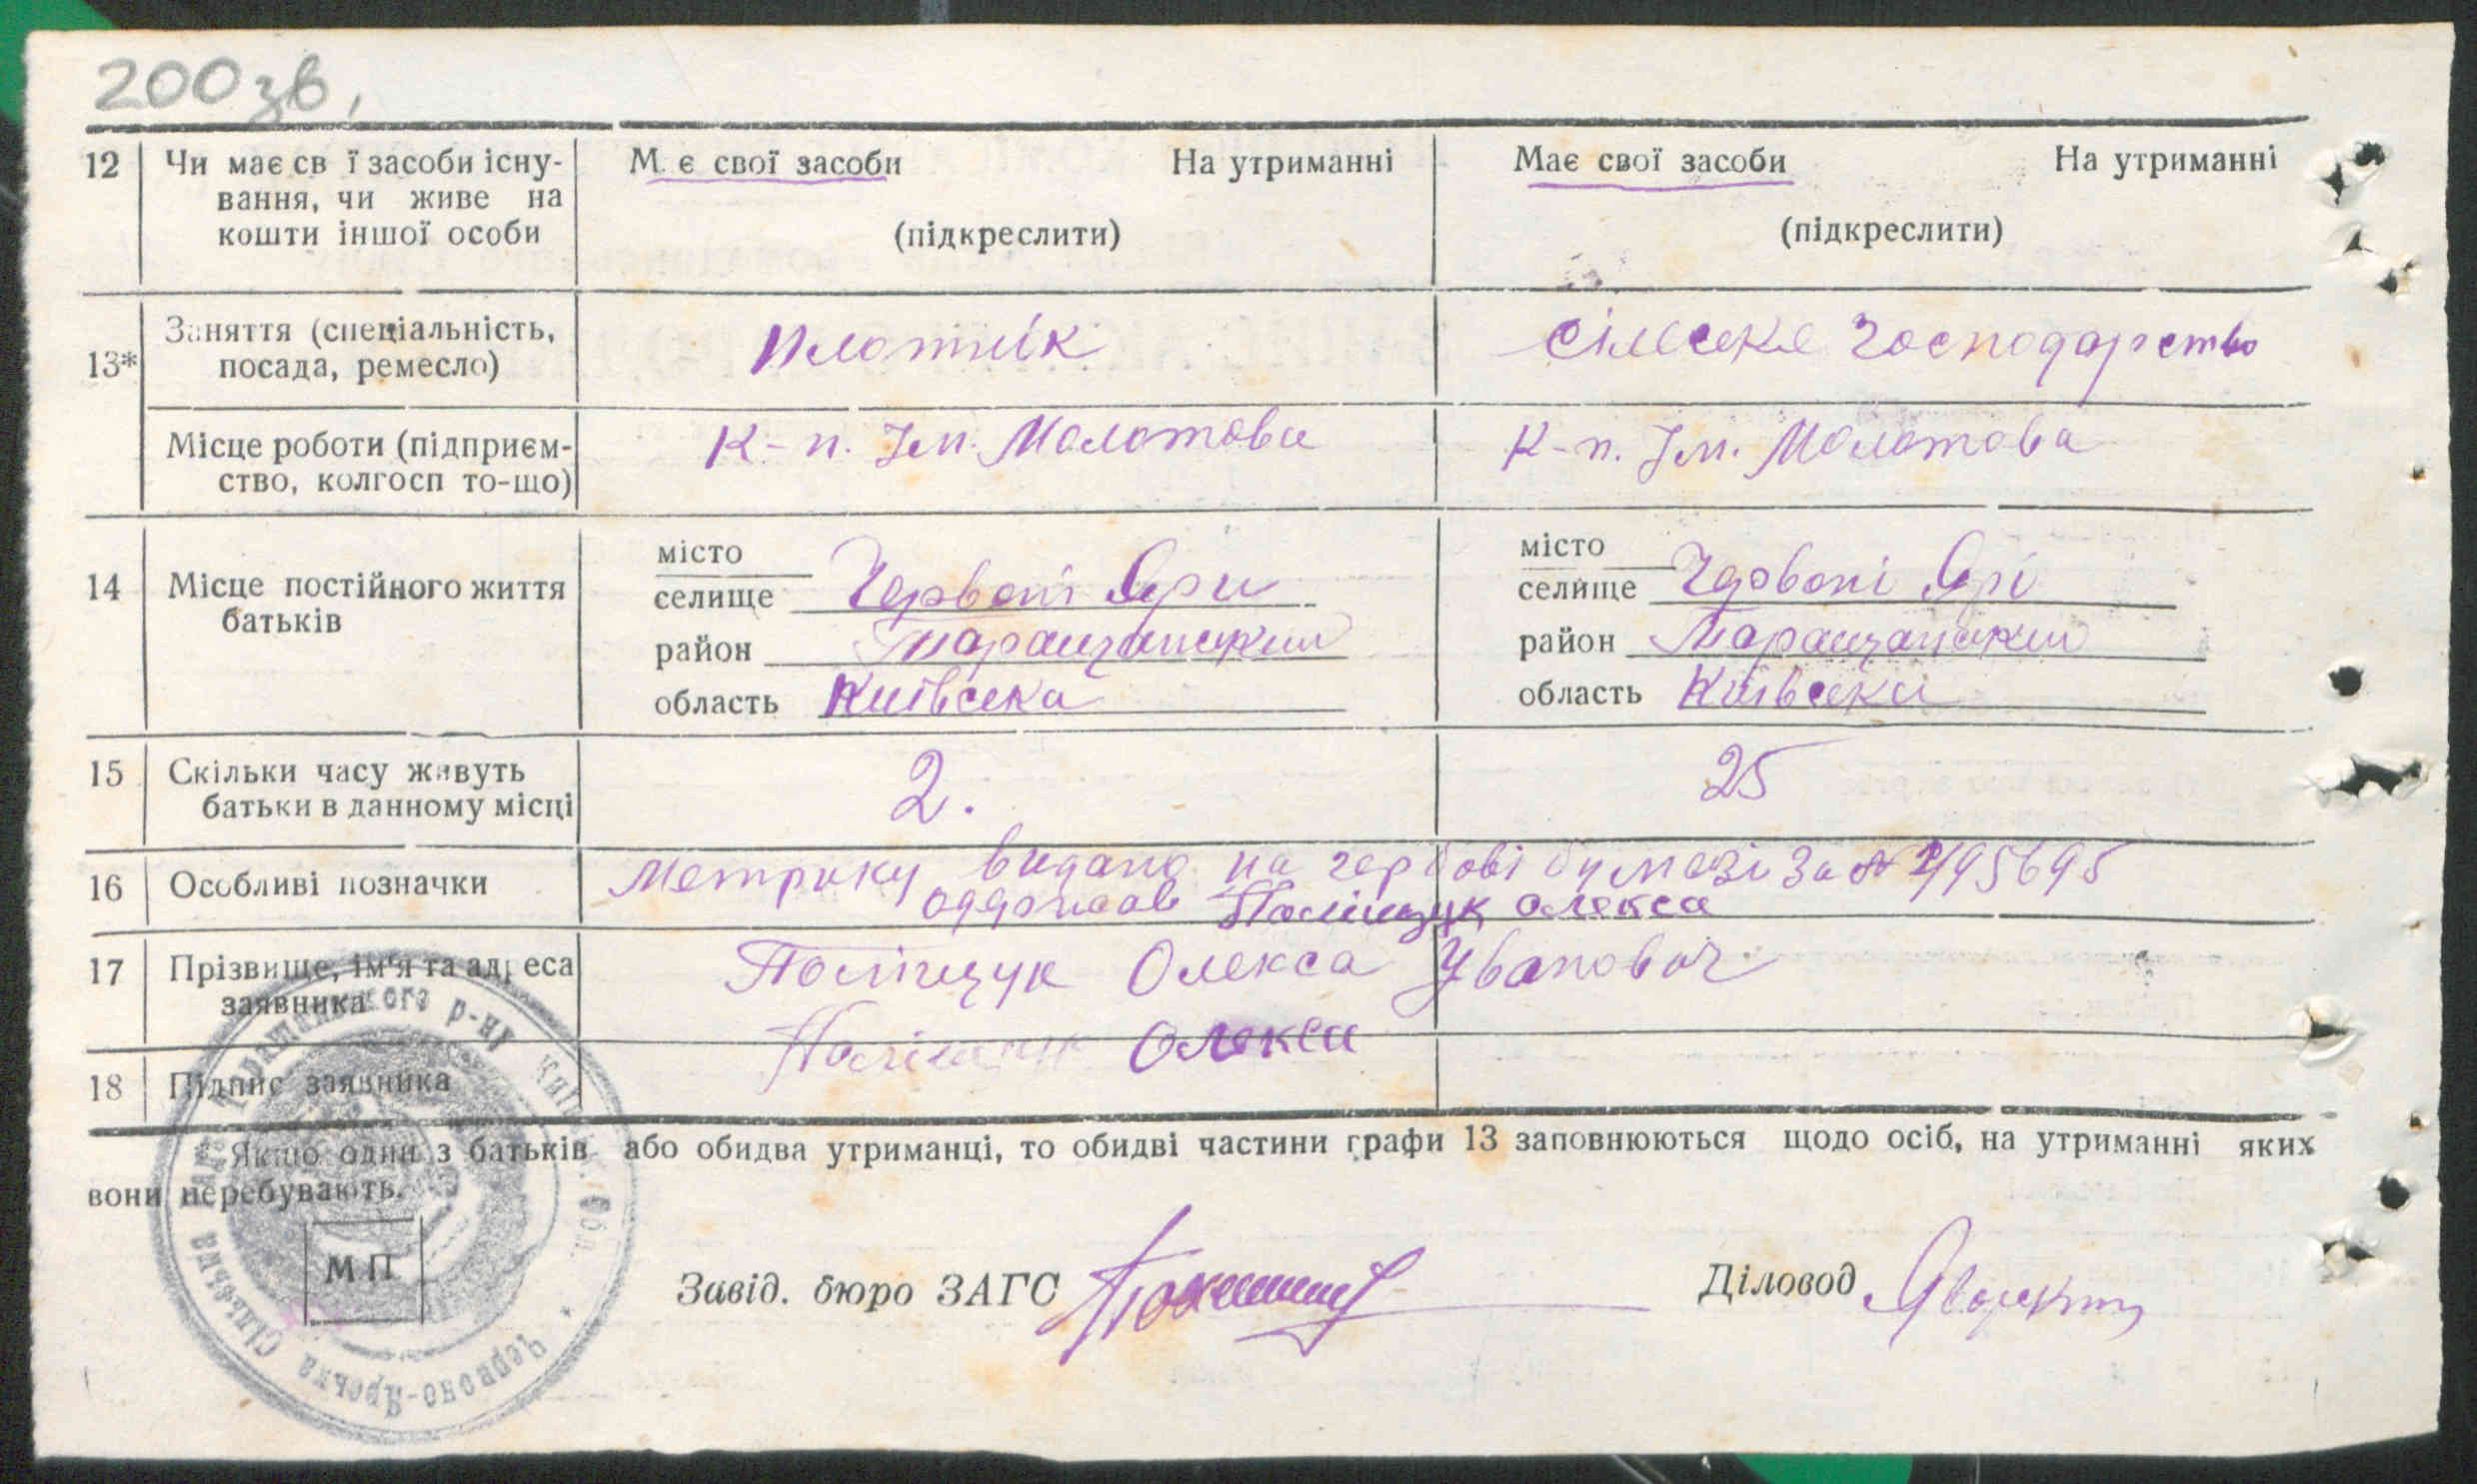 200 зв.
12 Чи має св ї засоби існу- М є свої засоби На утриманні Має свої засоби На утриманні
вання, чи живе на
кошти іншої особи (підкреслити) (підкреслити)
Заняття (спеціальність, Плотнік Сільске господарство
13* посада, ремесло)
Місце роботи (підприєм- К-п. Ім. Молотова К-п. Ім. Молотова
ство, колгосп то-що)
місто місто
14 Місце постійного життя селище Червоні Яри селище Червоні Ярі
батьків район Таращанский район Таращанский
область Київська область Київська
15 Скільки часу живуть 2. 25
батьки в данному місці
16 Особливі позначки Метрику видано на гербові бумазі за №
одержав Поліщук Олекса
17 Прізвище, ім'я та адреса Поліщук Олекса Іванович
заявника
18 Підпис заявника Поліщук Олекса
Якщо один з батьків або обидва утриманці, то обидві частини графи 13 заповнюються щодо осіб, на утриманні яких
вони перебувають.
МП
Завід. бюро ЗАГС
Діловод
Червоно-Ярська Сільська Рада Таращанського р-ну Київ. Обл.